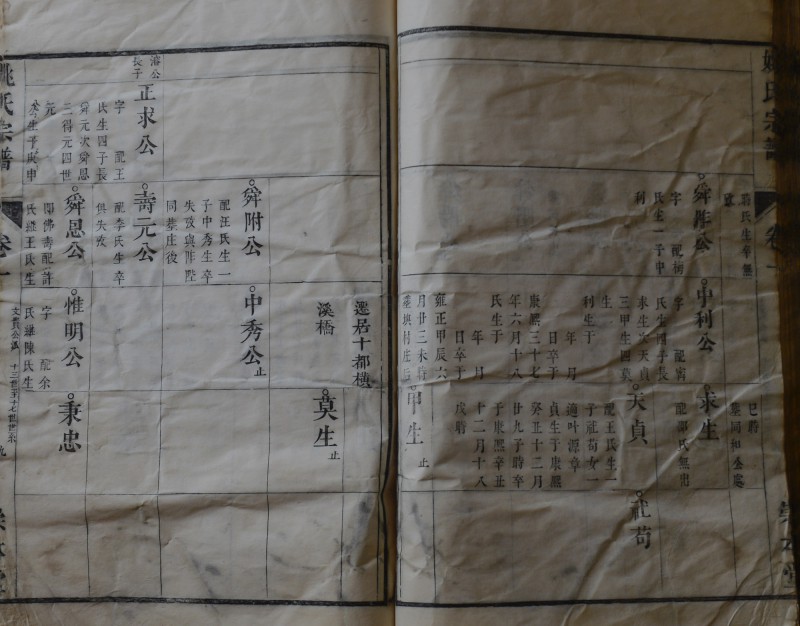 姚氏宗譜
卷一
蔣氏生卒無
巳時
舜胙公
字
氏生一子中
利
中利公
字 配甯
氏生四子長
求生次天貞
三甲生四莫
生
求生
配鄭氏無出
利生于
年 月
日卒于
天貞
配王氏生一
子社苟女一
適叶源章
社苟
貞生于康熙
癸丑十二月
廿九子時卒
康熙三十七
年六月十八
氏生于
年 月
日卒于
子康熙辛丑
十二月十八
戌時
雍正甲辰六
月廿三未時
甲生
止
遷居十都橫
溪橋
莫生
止
舜附公
配汪氏生一
子中秀生卒
失攷與阼陛
同葬庄後
中秀公
止
濬公
長子
正求公
字 配王
氏生四子長
舜元次舜恩
三得元四世
元
公生于庚申
壽元公
配李氏生卒
俱失攷
舜恩公
配許
氏繼王氏生
惟明公
字 配余
氏繼陳氏生
秉忠
十三世至十七世世系
九
姚氏宗譜
卷一